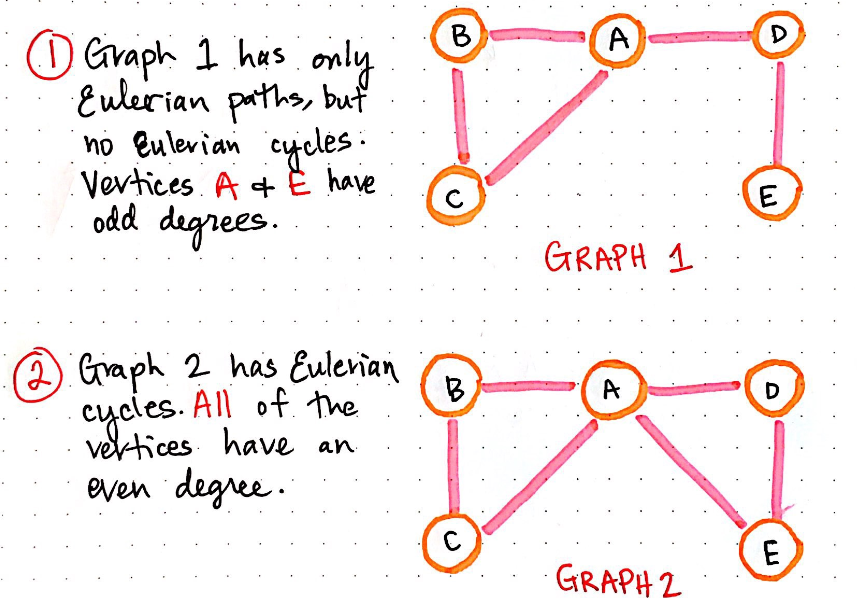 1 Graph 1 has only
Eulerian paths, but
no Eulerian cycles.
Vertices A + E have
odd degrees.
B A D
C E
GRAPH 1
2 Graph 2 has Eulerian
cycles. All of the
vertices have an
even degree.
B A D
C E
GRAPH 2